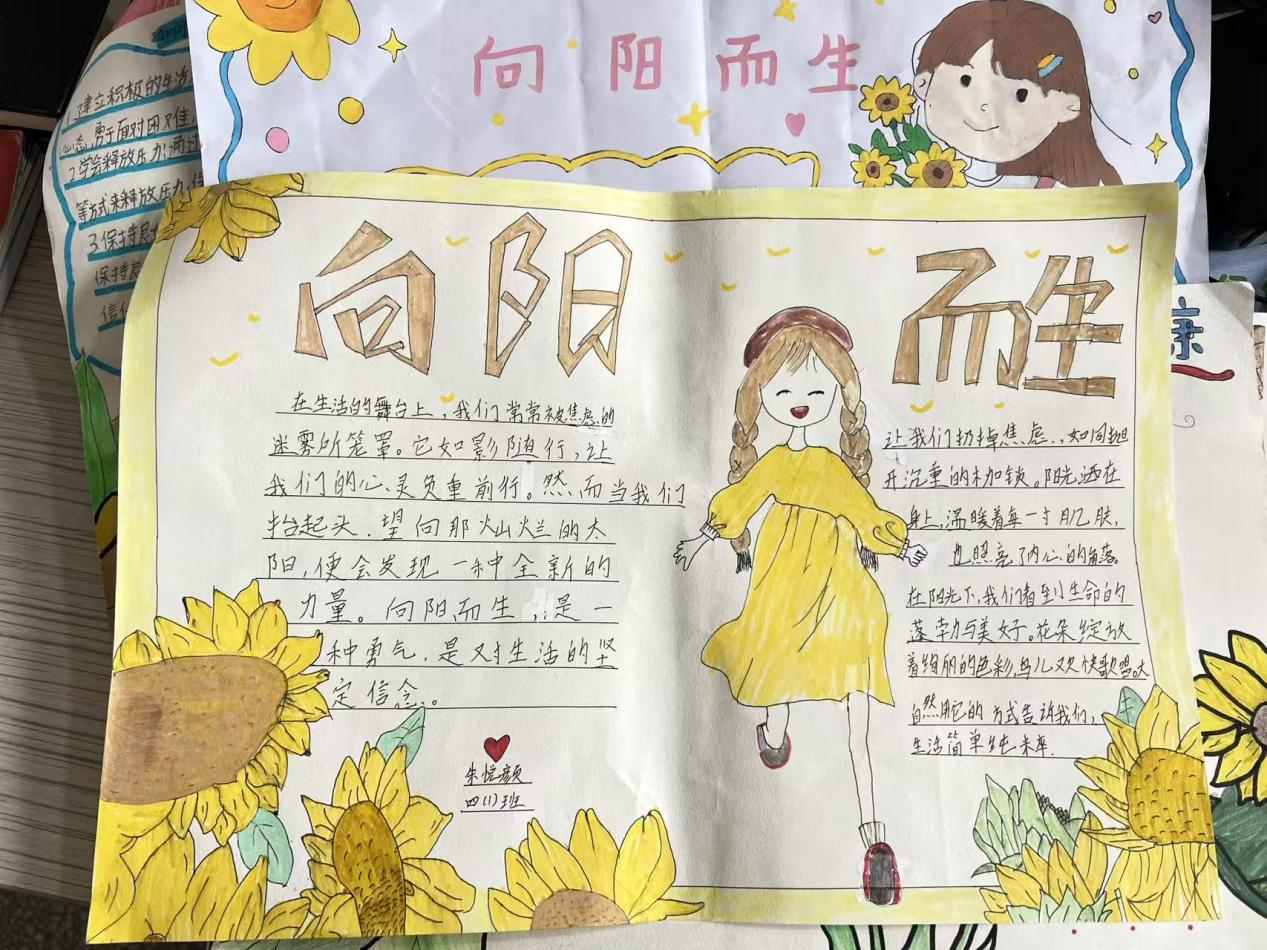 向阳而生
建立积极的生活
心态,勇于面对困难
2.学会释放压力:通过
等方式来释放压力,
3.保持良
保持良
信
康
向阳而生
在生活的舞台上,我们常常被焦虑的
迷雾所笼罩。它如影随行,让
我们的心灵负重前行。然而当我们
抬起头,望向那灿烂的太
阳,便会发现一种全新的
力量。向阳而生,是一
种勇气,是对生活的坚
定信念。
朱悦颜
四(1)班
让我们扔掉焦虑,如同抛
开沉重的枷锁。阳光洒在
身上,温暖着每一寸肌肤,
也照亮了内心的角落。
在阳光下,我们看到生命的
蓬勃与美好。花朵绽放
着绚丽的色彩,鸟儿欢快歌唱。大
自然用它的方式告诉我们,
生活简单纯粹。